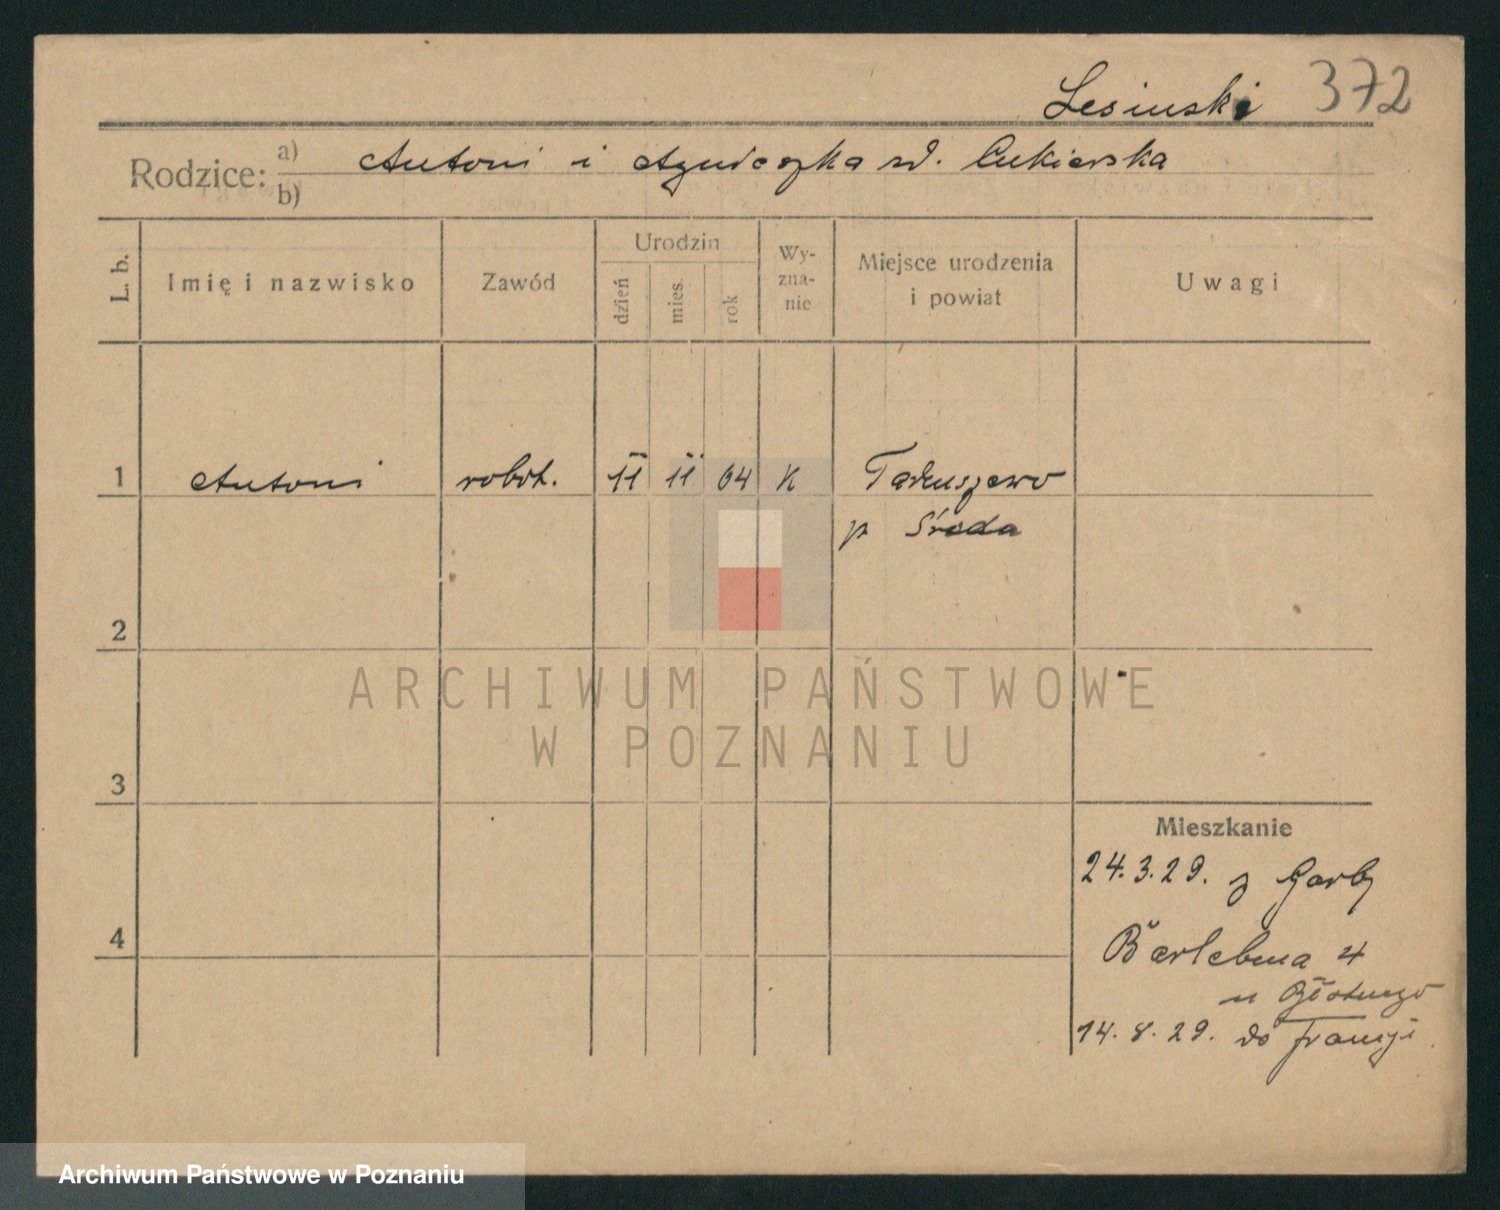 Lesiński 372
Rodzice: a) Antoni i Agnieszka zd. Cukierska
b)
L. b. Imię i nazwisko Zawód Urodzin dzień mies. rok Wy-zna-nie Miejsce urodzenia i powiat Uwagi
1 Antoni robot. 11 11 04 K Tadeuszewo
p Środa
2
ARCHIWUM PAŃSTWOWE
W POZNANIU
3
Mieszkanie
24.3.29. z Garby
4
Bärlebena 4
u
14.8.29. do Francji
Archiwum Państwowe w Poznaniu